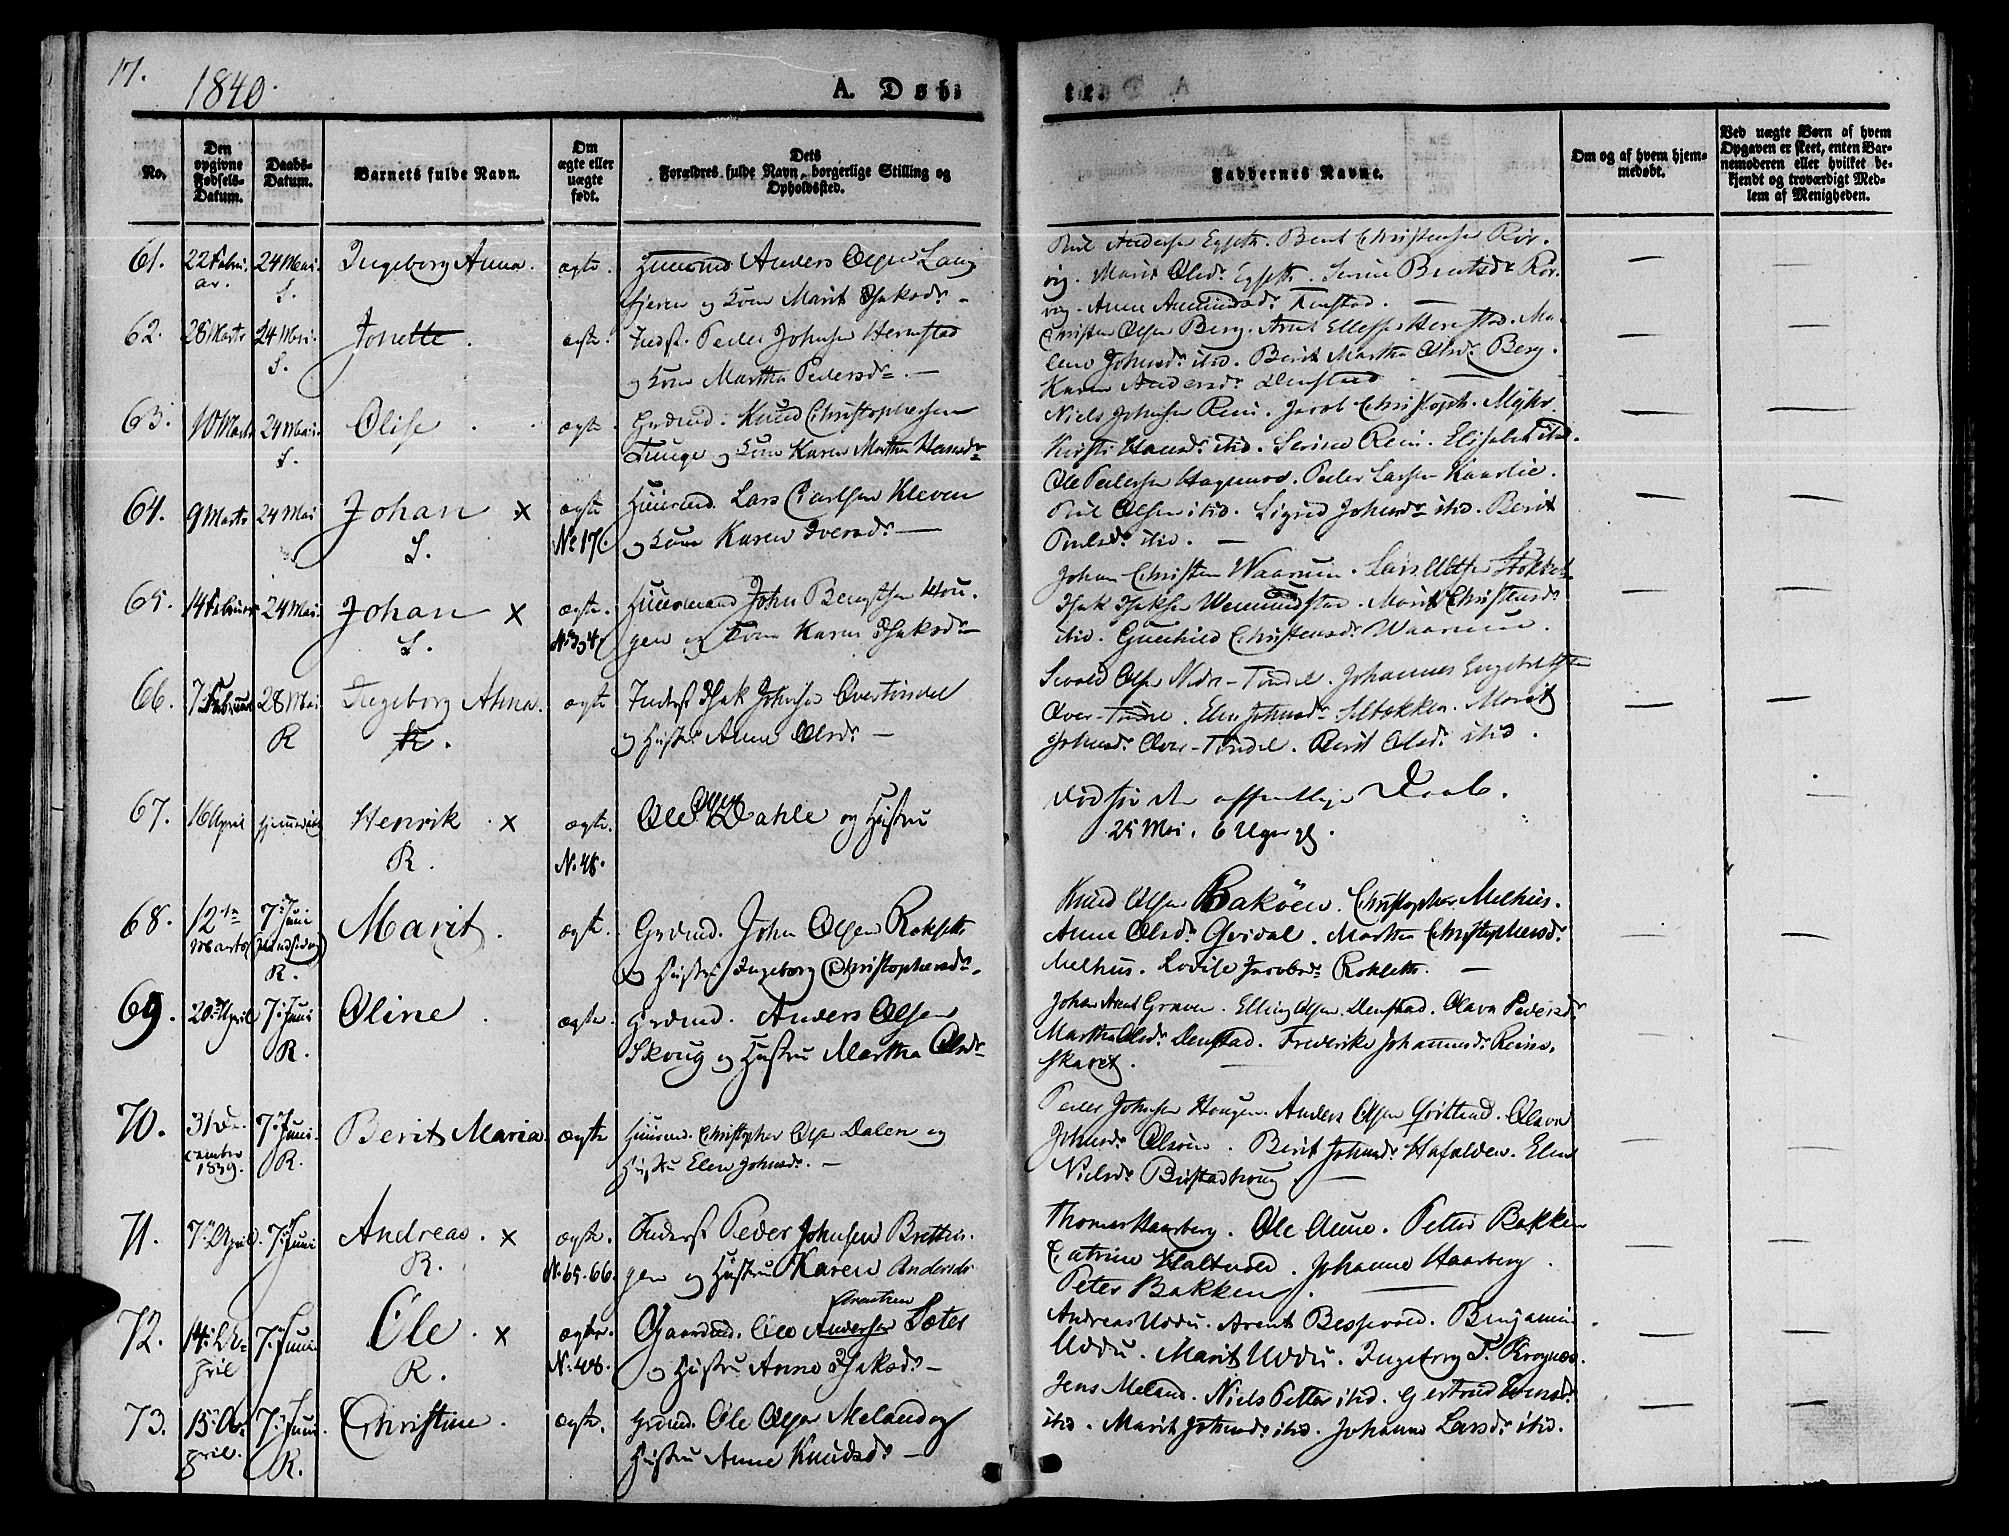 17.
1840.
A. Døbte
No.
Den opgivne Fødsels-Datum.
Daabs-Datum.
Barnets fulde Navn.
Om ægte eller uægte født.
Dets Forældres fulde Navn, borgerlige Stilling og Opholdssted.
Faddernes Navne.
Om og af hvem hjemmedøbt.
Ved uægte Børn af hvem Opgaven er skeet, enten Barnemoderen eller hvilket bekjendt og troværdigt Medlem af Menigheden.
61. 22 Februar. 24 Mai. S. Ingeborg Anna. ægte. Huusmd Anders Olsen
og Kone Marit Isaksdr
Paul Andersen Egseth. Bent Christensen Rørvig. Marit Olsdr Egseth. Serine Bentsdr Rørvig. Anne Amundsdr
62. 28 Marts 24 Mai. S. Jonette. ægte. Inderst. Peder Johnsen Hernstad
og Kone Martha Pedersdr. —
Christen Olsen Berg. Arnt Ellefsen Hernstad. Malene Johnsdr ibid. Berit Martha Olsdr Berg.
Karen Andersdr Denstad
63. 10 Marts 24 Mai. S. Olise ægte. Grdmd. Knud Christophersen
Tunge og Kone Karen Martha Hansdr
Niels Johnsen Rein. Jacob Christoph. Myhr.
Kirsti Hansdr ibid. Serine Rein. Elisabet ibid.
64. 9 Marts 24 Mai Johan × S. ægte No 171. Huusmd. Lars Carlsen Kleven
og Kone Karen Iversdr —
Ole Pedersen Hagemo. Peder Larsen Kaarlie.
Paul Olsen ibid. Sigrid Johnsdr ibid. Berit
Paulsdr ibid. —
65. 14 Februar 24 Mai Johan × S. ægte. Huusmand John Bengtsen Hougen og Kone Karen Isaksdr
Johan Christen Waarum. Lars
Isak Isaksen Wemundstad. Marit Christensdr
ibid. Gunhild Christensdr Waarum.
66. 7 Februar 28 Mai R Ingeborg Anna. R. ægte Inderst Isak Johnsen Overtindel
og Hustru Anne Olsdr —
Sivald Olsen Nedre-Tindel. Johannes Engebretsen
Over-Tindel. Elen Johnsdr Selbekken. Marit
Johnsdr Over-Tindel. Berit Olsdr ibid.
67. 16 April hjemmedøbt Henrik × R. ægte. N. 48. Ole Olsen Dahle og Hustru
Død før den offentlige Daab.
25 Mai. 6 Uger gl.
68. 12te Marts 7 Juni (Pindsedag) R. Marit. ægte. Grdmd. John Olsen Rokseth
og Hustru Ingeborg Christophersdr.
Knud Olsen Bakøen. Christopher Melhus.
Anne Olsdr Qvidal. Martha Christophersdr
Melhus. Lovise Jacobsdr Rokseth. —
69. 20 April 7 Juni R. Oline ægte. Grdmd. Anders Olsen
Skoug og Hustru Martha Olsdr
Johan Arnt Graven. Elling Olsen Denstad. Olava Pedersdr
Martha Olsdr Denstad. Frederike Johannesdr Reinsskaret.
70. 31 December 1839. 7 Juni. R. Berit Maria ægte Huusmd. Christopher Olsen Dalen og
Hustru Elen Johnsdr. —
Peder Johnsen Hougen. Anders Olsen. Olava
Johnsdr Olsøen. Berit Johnsdr Hafalden. Elen
Nielsdr
71. 7 April. 7 Juni Andreas. × R. ægte. N. 65. 66. Inderst Peder Johnsen Brettingen og Hustru Karen Andersdr
Thomas Haarberg. Ole Aune. Petter Bakken
Catrine. Johanne Haarberg.
Peter Bakken.
72. 14 April 7 Juni Ole. × R. ægte. N. 48. Gaardmd. Ole Andersen Arentsen Sæter
og Hustru Anne Isaksdr —
Andreas Uddu. Arent Bessevold. Benjamin
Uddu. Marit Uddu. Ingeborg T. Krognæs.
73. 15 April. 7 Juni R. Christine. ægte. Grdmd. Ole Olsen Meland og
Hustru Anne Knudsdr —
Jens Meland. Niels Petter ibid. Gertrud
ibid. Marit Johnsdr ibid. Johanna Larsdr ibid.